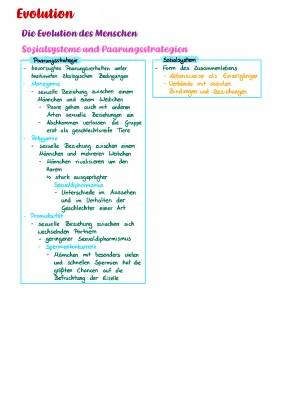 Evolution
Die Evolution des Menschen
Sozialsysteme und Paarungsstrategien
Paarungsstrategie
- bevorzugtes Paarungsverhalten unter
bestimmten ökologischen Bedingungen
- Monogamie
- sexuelle Beziehung zwischen einem
Männchen und einem Weibchen
- Paare gehen auch mit anderen
Arten sexuelle Beziehungen ein
- Nachkommen verlassen die Gruppe
erst als geschlechtsreife Tiere
- Polygynie
- sexuelle Beziehung zwischen einem
Männchen und mehreren Weibchen
- Männchen rivalisieren um den
Harem
↳ stark ausgeprägter
Sexualdimorphismus
- Unterschiede im Aussehen
und im Verhalten der
Geschlechter einer Art
- Promiskuität
- sexuelle Beziehung zwischen sich
wechselnden Partnern
- geringerer Sexualdimorphismus
- Spermienkonkurrenz
- Männchen mit besonders vielen
und schnellen Spermien hat die
größten Chancen auf die
Befruchtung der Eizelle
Sozialsystem
- Form des Zusammenlebens
- Lebensweise als Einzelgänger
- Verbände mit sozialen
Bindungen und Beziehungen